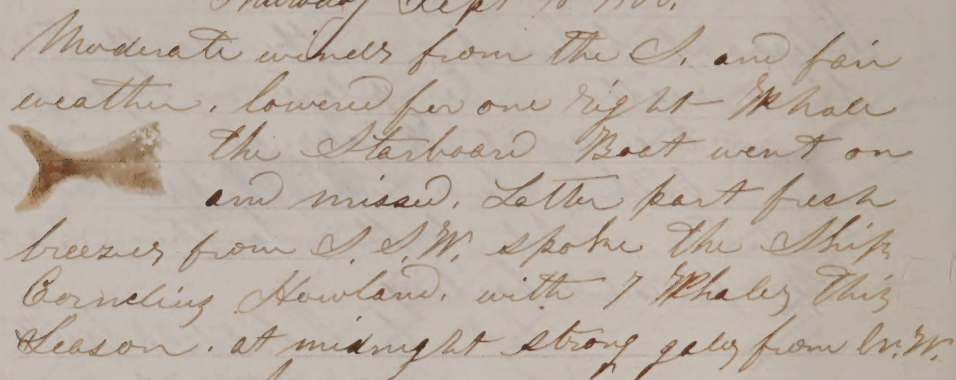 Thursday Sept
Moderate winds from the S. and fair
weather. lowered for one right Whale
the Starboard Boat went on
and missed. Latter part fresh
breezes from S. S. W. spoke the Ship
Cornelius Howland. with 7 Whales this
Season. at midnight strong gales from N. W.